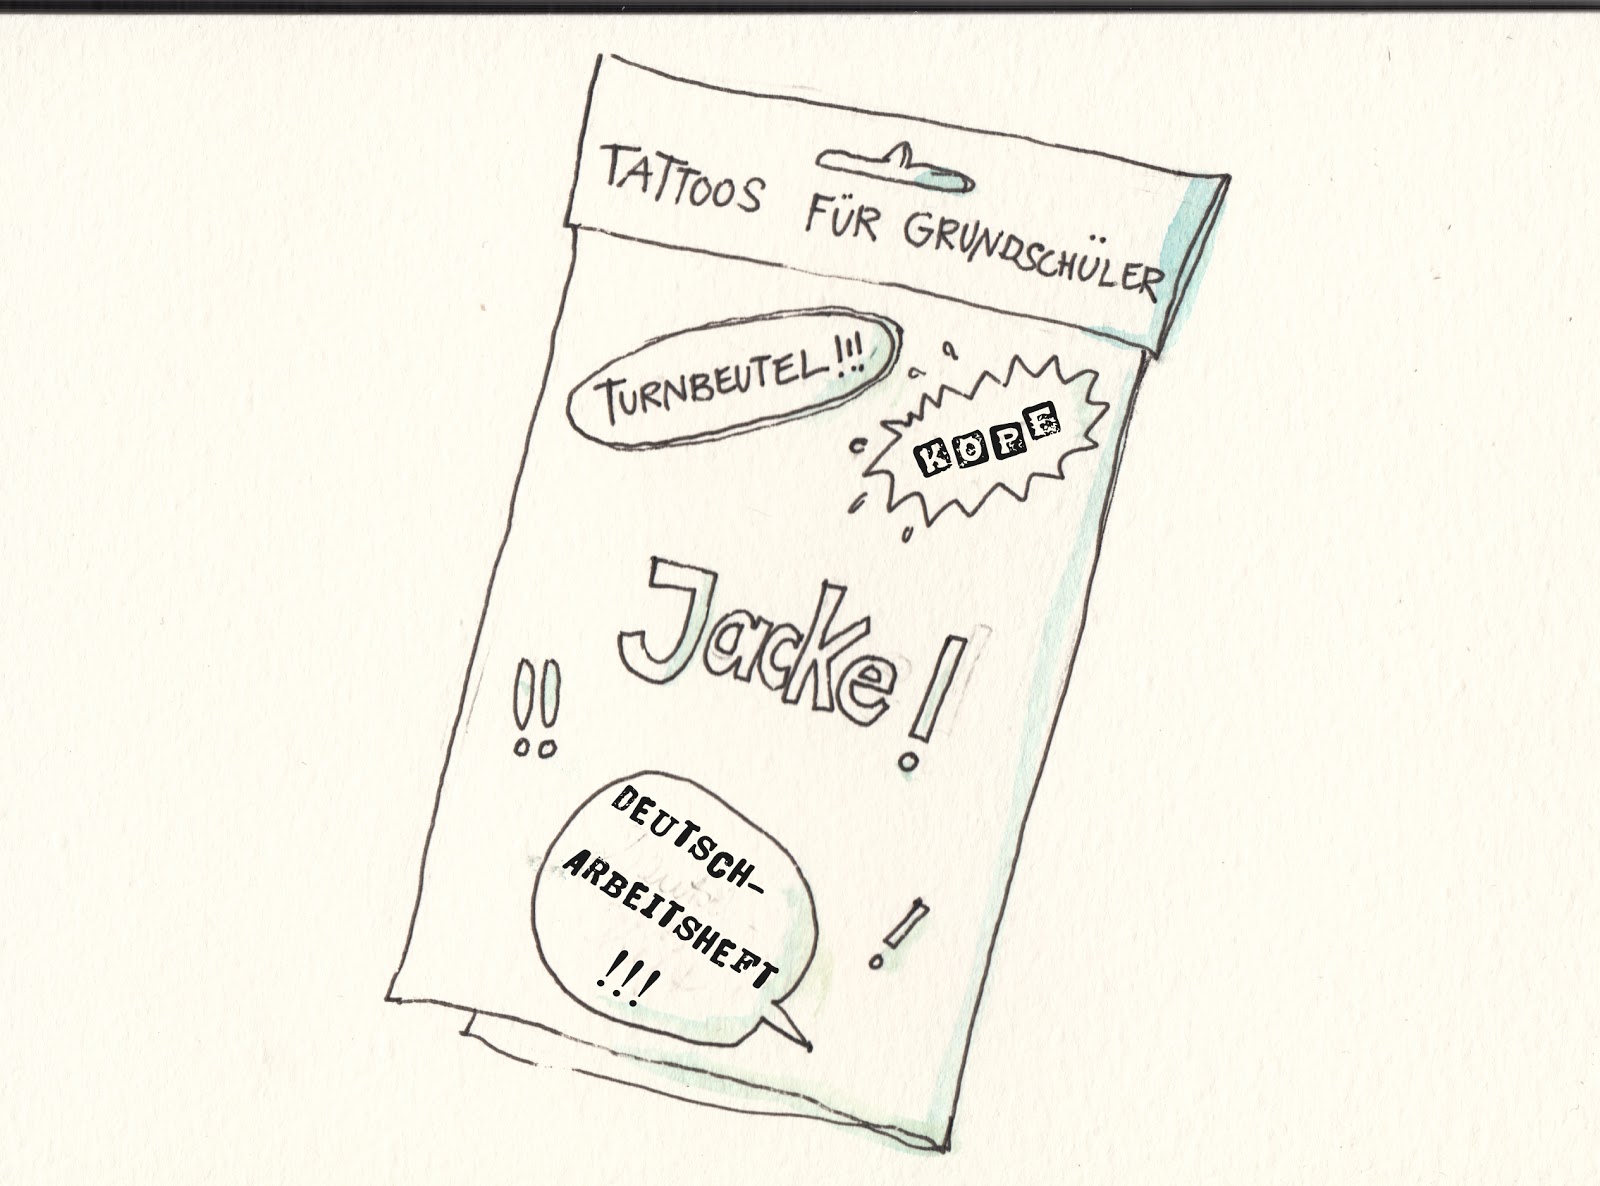 TATTOOS FÜR GRUNDSCHÜLER
TURNBEUTEL!!!
KOPF
Jacke!
!!
DEUTSCH-
ARBEITSHEFT
!!!
!